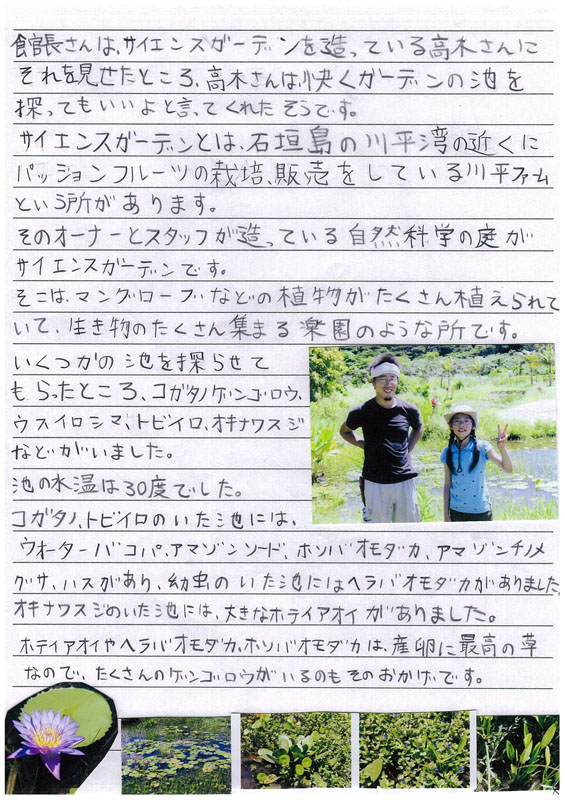 館長さんは、サイエンスガーデンを造っている高木さんに
それを見せたところ、高木さんは、快くガーデンの池を
探ってもいいよと言ってくれたそうです。
サイエンスガーデンとは、石垣島の川平湾の近くに
パッションフルーツの栽培、販売をしている川平ファーム
という所があります。
そのオーナーとスタッフが造っている自然科学の庭が
サイエンスガーデンです。
そこは、マングローブなどの植物がたくさん植えられて
いて、生き物のたくさん集まる楽園のような所です。
いくつかの池を探らせて
もらったところ、コガタノゲンゴロウ、
ウスイロシマ、トビイロ、オキナワスジ
などがいました。
池の水温は30度でした。
コガタノ、トビイロのいた池には、
ウォーターバコパ、アマゾンソード、ホソバオモダカ、アマゾンチドメ
グサ、ハスがあり、幼虫のいた池にはヘラバオモダカがありました。
オキナワスジのいた池には、大きなホテイアオイがありました。
ホテイアオイやヘラバオモダカ、ホソバオモダカは、産卵に最高の草
なので、たくさんのゲンゴロウがいるのもそのおかげです。